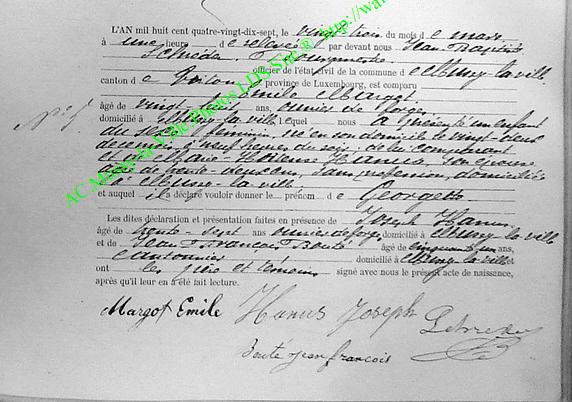 L'AN mil huit cent quatre-vingt-dix-sept, le vingt trois du mois de mars
à une heure de relevée par devant nous Jean Baptiste
Schréder, Bourgmestre
officier de l'état civil de la commune de Musy-la-ville
canton de Virton, province de Luxembourg, est comparu
Emile Margot
âgé de vingt ans, ouvrier de forges
domicilié à Musy la ville lequel nous a présenté un enfant
du sexe féminin, né en son domicile le vingt-deux
de ce mois à neuf heures du soir, de lui comparant
et de Marie Hanus, son épouse
âgée de trente-deux ans, sans profession, domiciliée
à Musy-la-ville
et auquel il a déclaré vouloir donner le prénom de Georgette
Les dites déclaration et présentation faites en présence de Joseph Hanus
âgé de trente-sept ans ouvrier de forges domicilié à Musy-la-ville
et de Jean François Bouté âgé de cinquante un ans,
cantonnier domicilié à Musy-la-ville
ont les père et témoins signé avec nous le présent acte de naissance,
après qu'il leur en a été fait lecture.
Margot Emile Hanus Joseph
Bouté jean françois
N° 5